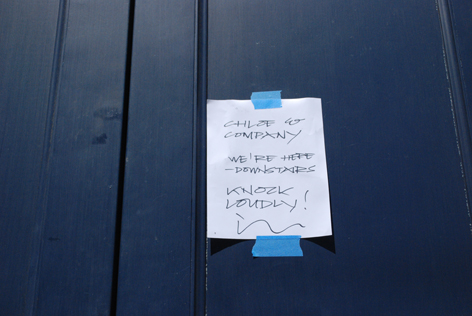 CHLOE &
COMPANY
WE'RE HERE
- DOWNSTAIRS
KNOCK
LOUDLY!